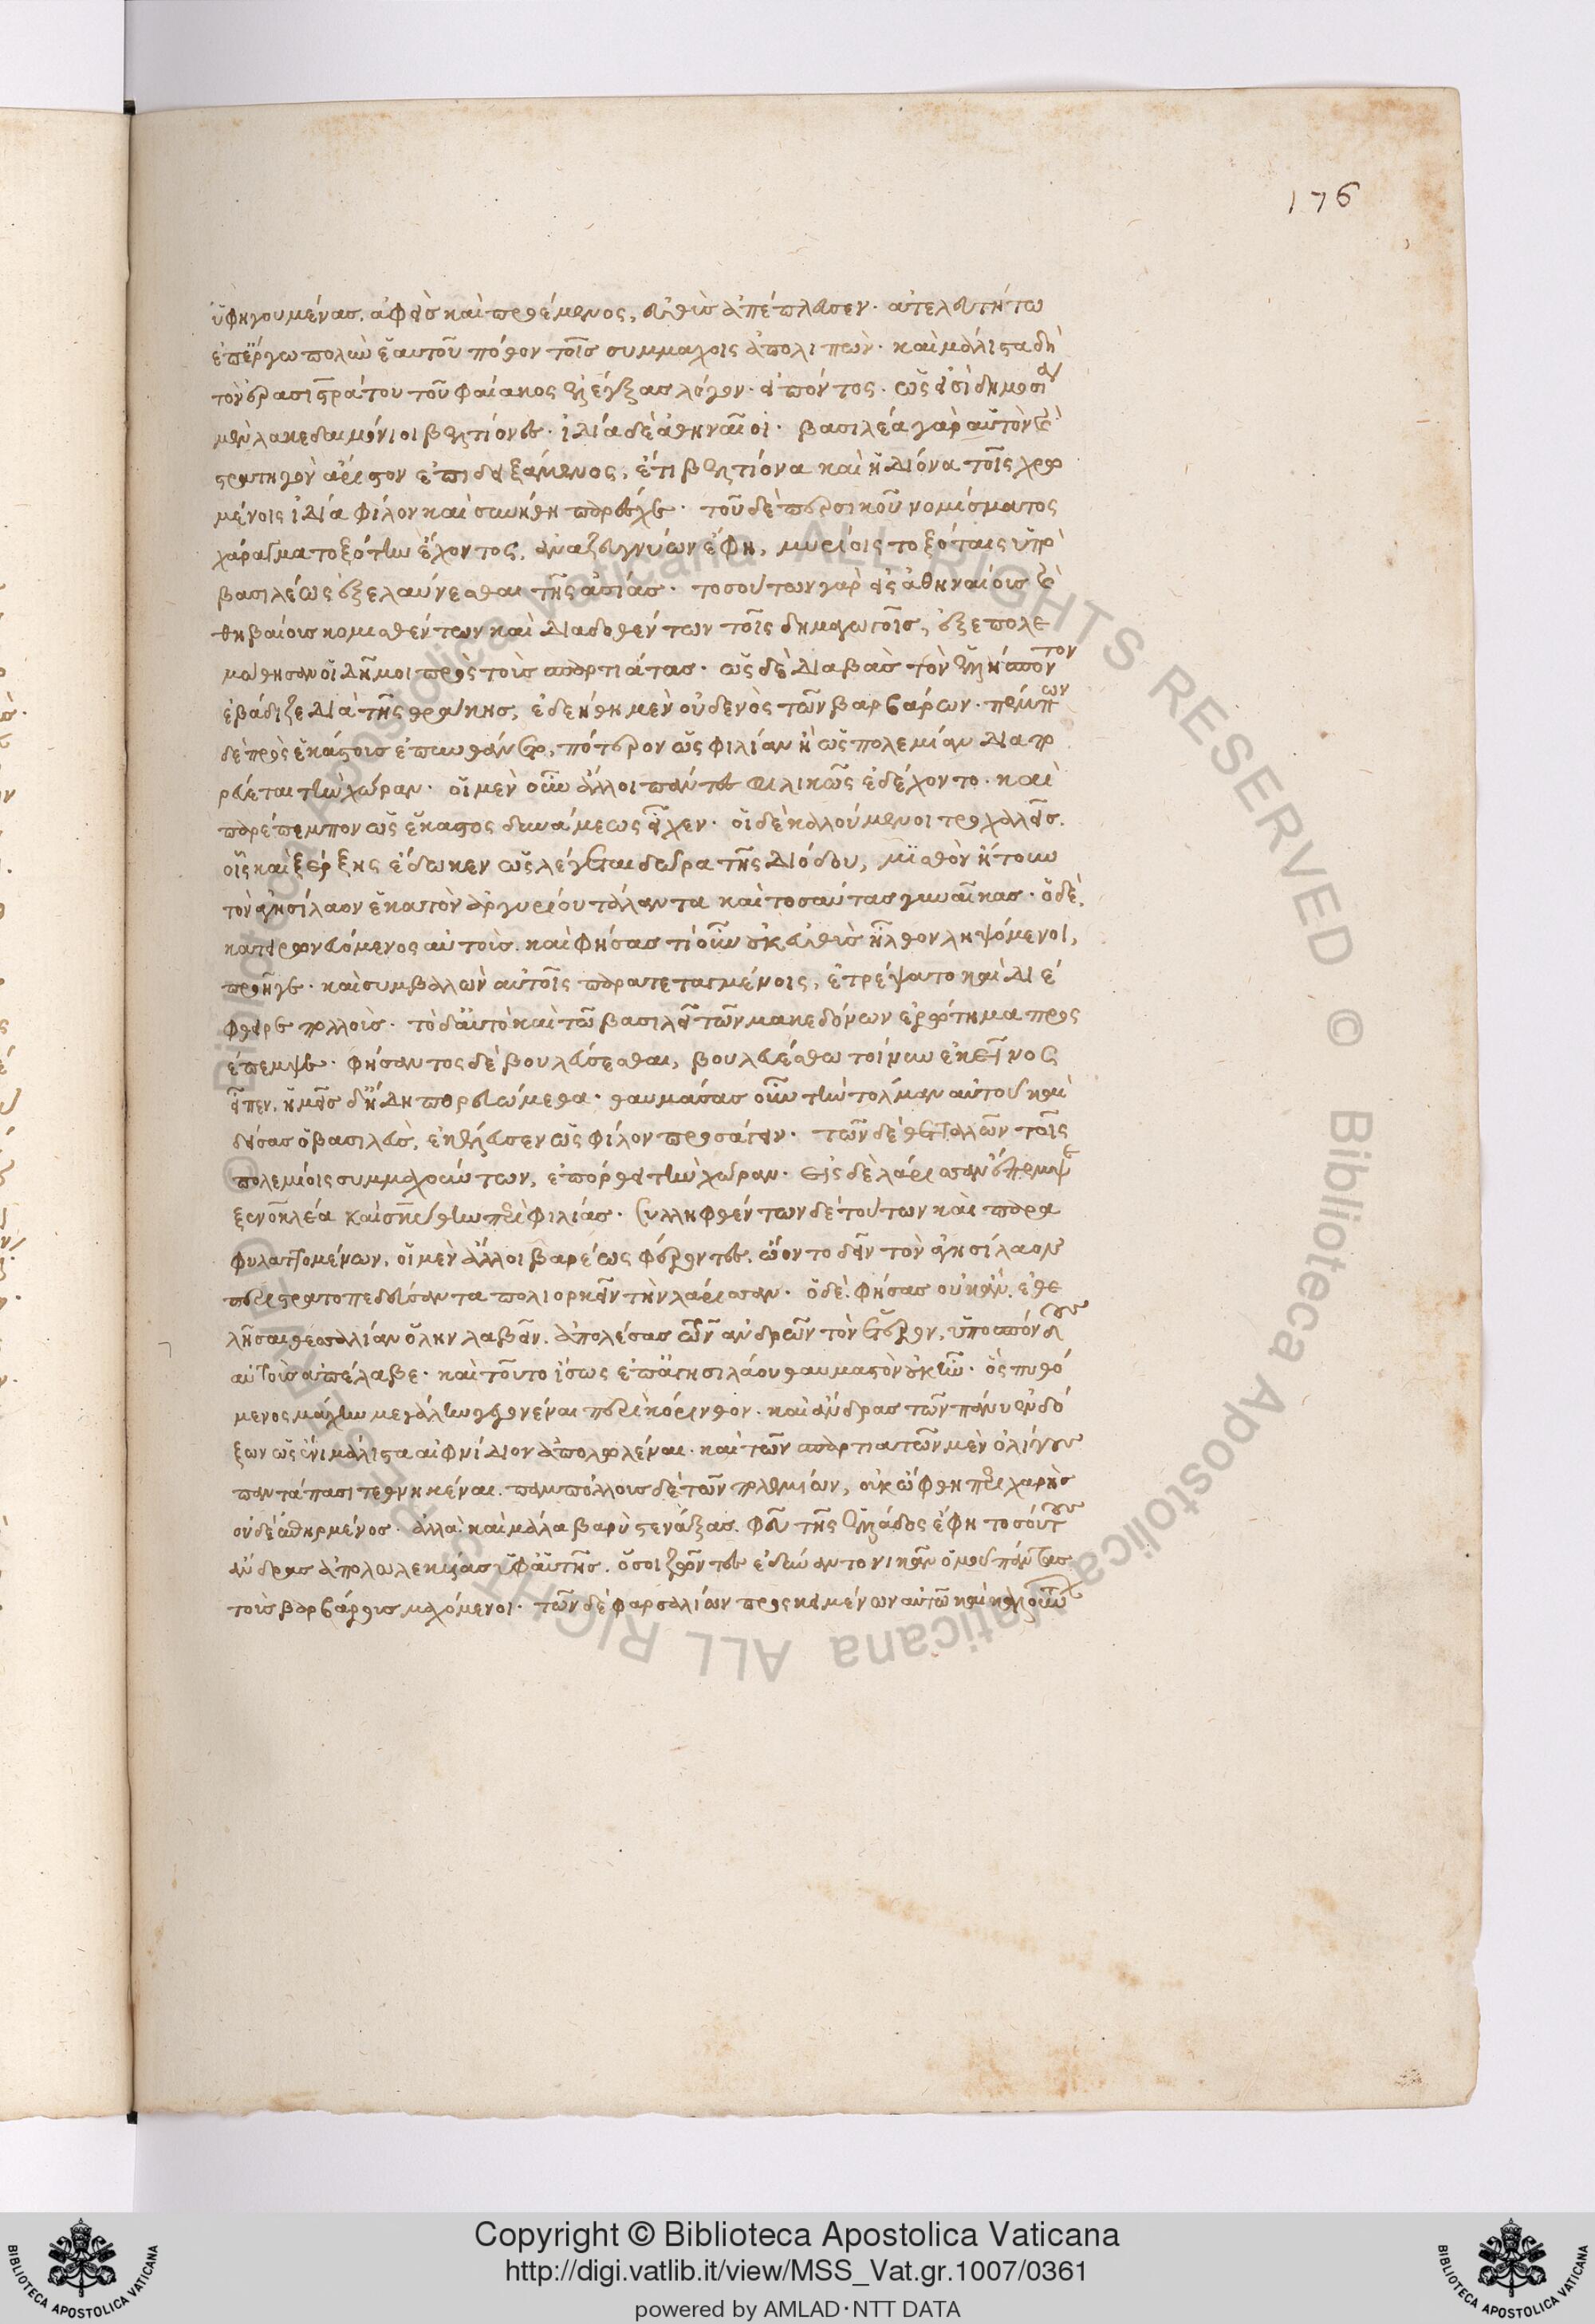 ὑφηγουμένας. ἀφεὶς καὶ προέμενος, εὐθὺς ἀπέπλευσεν· ἀτελευτήτω
ἐπ' ἔργω πολὺν ἑαυτοῦ πόθον τοῖς συμμάχοις ἀπολιπὼν· καὶ μάλιστα δὴ
τὸν ἐρασιστράτου τοῦ φαίακος ἐλέγξας λόγον· εἰπόντος· ὡς εἰσὶ δημοσία
μὲν λακεδαιμόνιοι βελτίονες· ἰδία δὲ ἀθηναῖοι· βασιλέα γὰρ αὑτὸν καὶ
στρατηγὸν ἄριστον ἐπιδειξάμενος, ἔτι βελτίονα καὶ ἡδίονα τοῖς χρω
μένοις ἰδία φίλον καὶ συνήθη παρέσχε· τοῦ δὲ περσικοῦ νομίσματος
χάραγμα τοξότην ἔχοντος, ἀναζευγνύων ἔφη, μυρίοις τοξόταις ὑπὸ
βασιλέως ἐξελαύνεσθαι τῆς ἀσίας· τοσούτων γὰρ εἰς ἀθηναίους καὶ
θηβαίους κομισθέντων καὶ διαδοθέντων τοῖς δημαγωγοῖς, ἐξεπολε
μώθησαν οἱ δῆμοι πρὸς τοὺς σπαρτιάτας· ὡς δὲ διαβὰς τὸν ἑλλήσποντον
ἐβάδιζε διὰ τῆς θράκης, ἐδεήθη μὲν οὐδενὸς τῶν βαρβάρων· πέμπων
δὲ πρὸς ἑκάστους ἐπυνθάνετο, πότερον ὡς φιλίαν ἢ ὡς πολεμίαν διαπο
ρεύεται τὴν χώραν· οἱ μὲν οὖν ἄλλοι πάντες φιλικῶς ἐδέχοντο· καὶ
παρέπεμπον ὡς ἕκαστος δυνάμεως εἶχεν· οἱ δὲ καλούμενοι τροχαλεῖς.
οἷς καὶ ξέρξης ἔδωκεν ὡς λέγεται δῶρα τῆς διόδου, μισθὸν ἤτουν
τὸν ἀγησίλαον ἑκατὸν ἀργυρίου τάλαντα καὶ τοσαύτας γυναῖκας· ὁ δὲ,
κατειρωνευόμενος αὐτοὺς. καὶ φήσας τί οὖν οὐκ εὐθὺς ἦλθον ληψόμενοι,
προῆγε· καὶ συμβαλὼν αὐτοῖς παρατεταγμένοις, ἐτρέψατο καὶ διέ
φθειρε πολλοὺς· τὸ δ' αὐτὸ καὶ τῶ βασιλεῖ τῶν μακεδόνων ἐρώτημα προς
έπεμψε· φήσαντος δὲ βουλεύσεσθαι, βουλευέσθω τοίνυν ἐκεῖνος
εἶπεν, ἡμεῖς δ' ἤδη πορευώμεθα· θαυμάσας οὖν τὴν τόλμαν αὐτοῦ καὶ
δείσας ὁ βασιλεὺς, ἐκέλευσεν ὡς φίλον προσάγειν· τῶν δὲ θετταλῶν τοῖς
πολεμίοις συμμαχούντων, ἐπόρθει τὴν χώραν· εἰς δὲ λάρισσαν ἔπεμψε
ξενοκλέα καὶ σκύθην περὶ φιλίας· συλληφθέντων δὲ τούτων καὶ παρα
φυλαττομένων, οἱ μὲν ἄλλοι βαρέως φέροντες, ὤοντο δεῖν τὸν ἀγησίλαον
περιστρατοπεδεύσαντα πολιορκεῖν τὴν λάρισσαν· ὁ δὲ. φήσας οὐκ ἂν. ἐθε
λῆσαι θεσσαλίαν ὅλην λαβεῖν. ἀπολέσας τῶν ἀνδρῶν τὸν ἕτερον, ὑποσπόνδους
αὐτοὺς ἀπέλαβε· καὶ τοῦτο ἴσως ἐπ' ἀγησιλάου θαυμαστὸν οὐκ ἦν· ὃς πυθό
μενος μάχην μεγάλην γεγονέναι περὶ κόρινθον. καὶ ἄνδρας τῶν πάνυ ἐνδό
ξων ὡς ἔνι μάλιστα αἰφνίδιον ἀπολωλέναι. καὶ τῶν σπαρτιατῶν μὲν ὀλίγους
παντάπασι τεθνηκέναι. παμπόλλους δὲ τῶν πολεμίων, οὐκ ὤφθη περιχαρὴς
οὐδὲ ἐπηρμένος. ἀλλὰ καὶ μάλα βαρὺ στενάξας. φεῦ τῆς ἑλλάδος ἔφη τοσούτους
ἄνδρας ἀπολωλεκυίας ὑφ' αὑτῆς. ὅσοι ζῶντες ἐδύναντο νικᾶν ὁμοῦ πάντας
τοὺς βαρβάρους μαχόμενοι· τῶν δὲ φαρσαλίων προσκειμένων αὐτῶ καὶ κακούντων